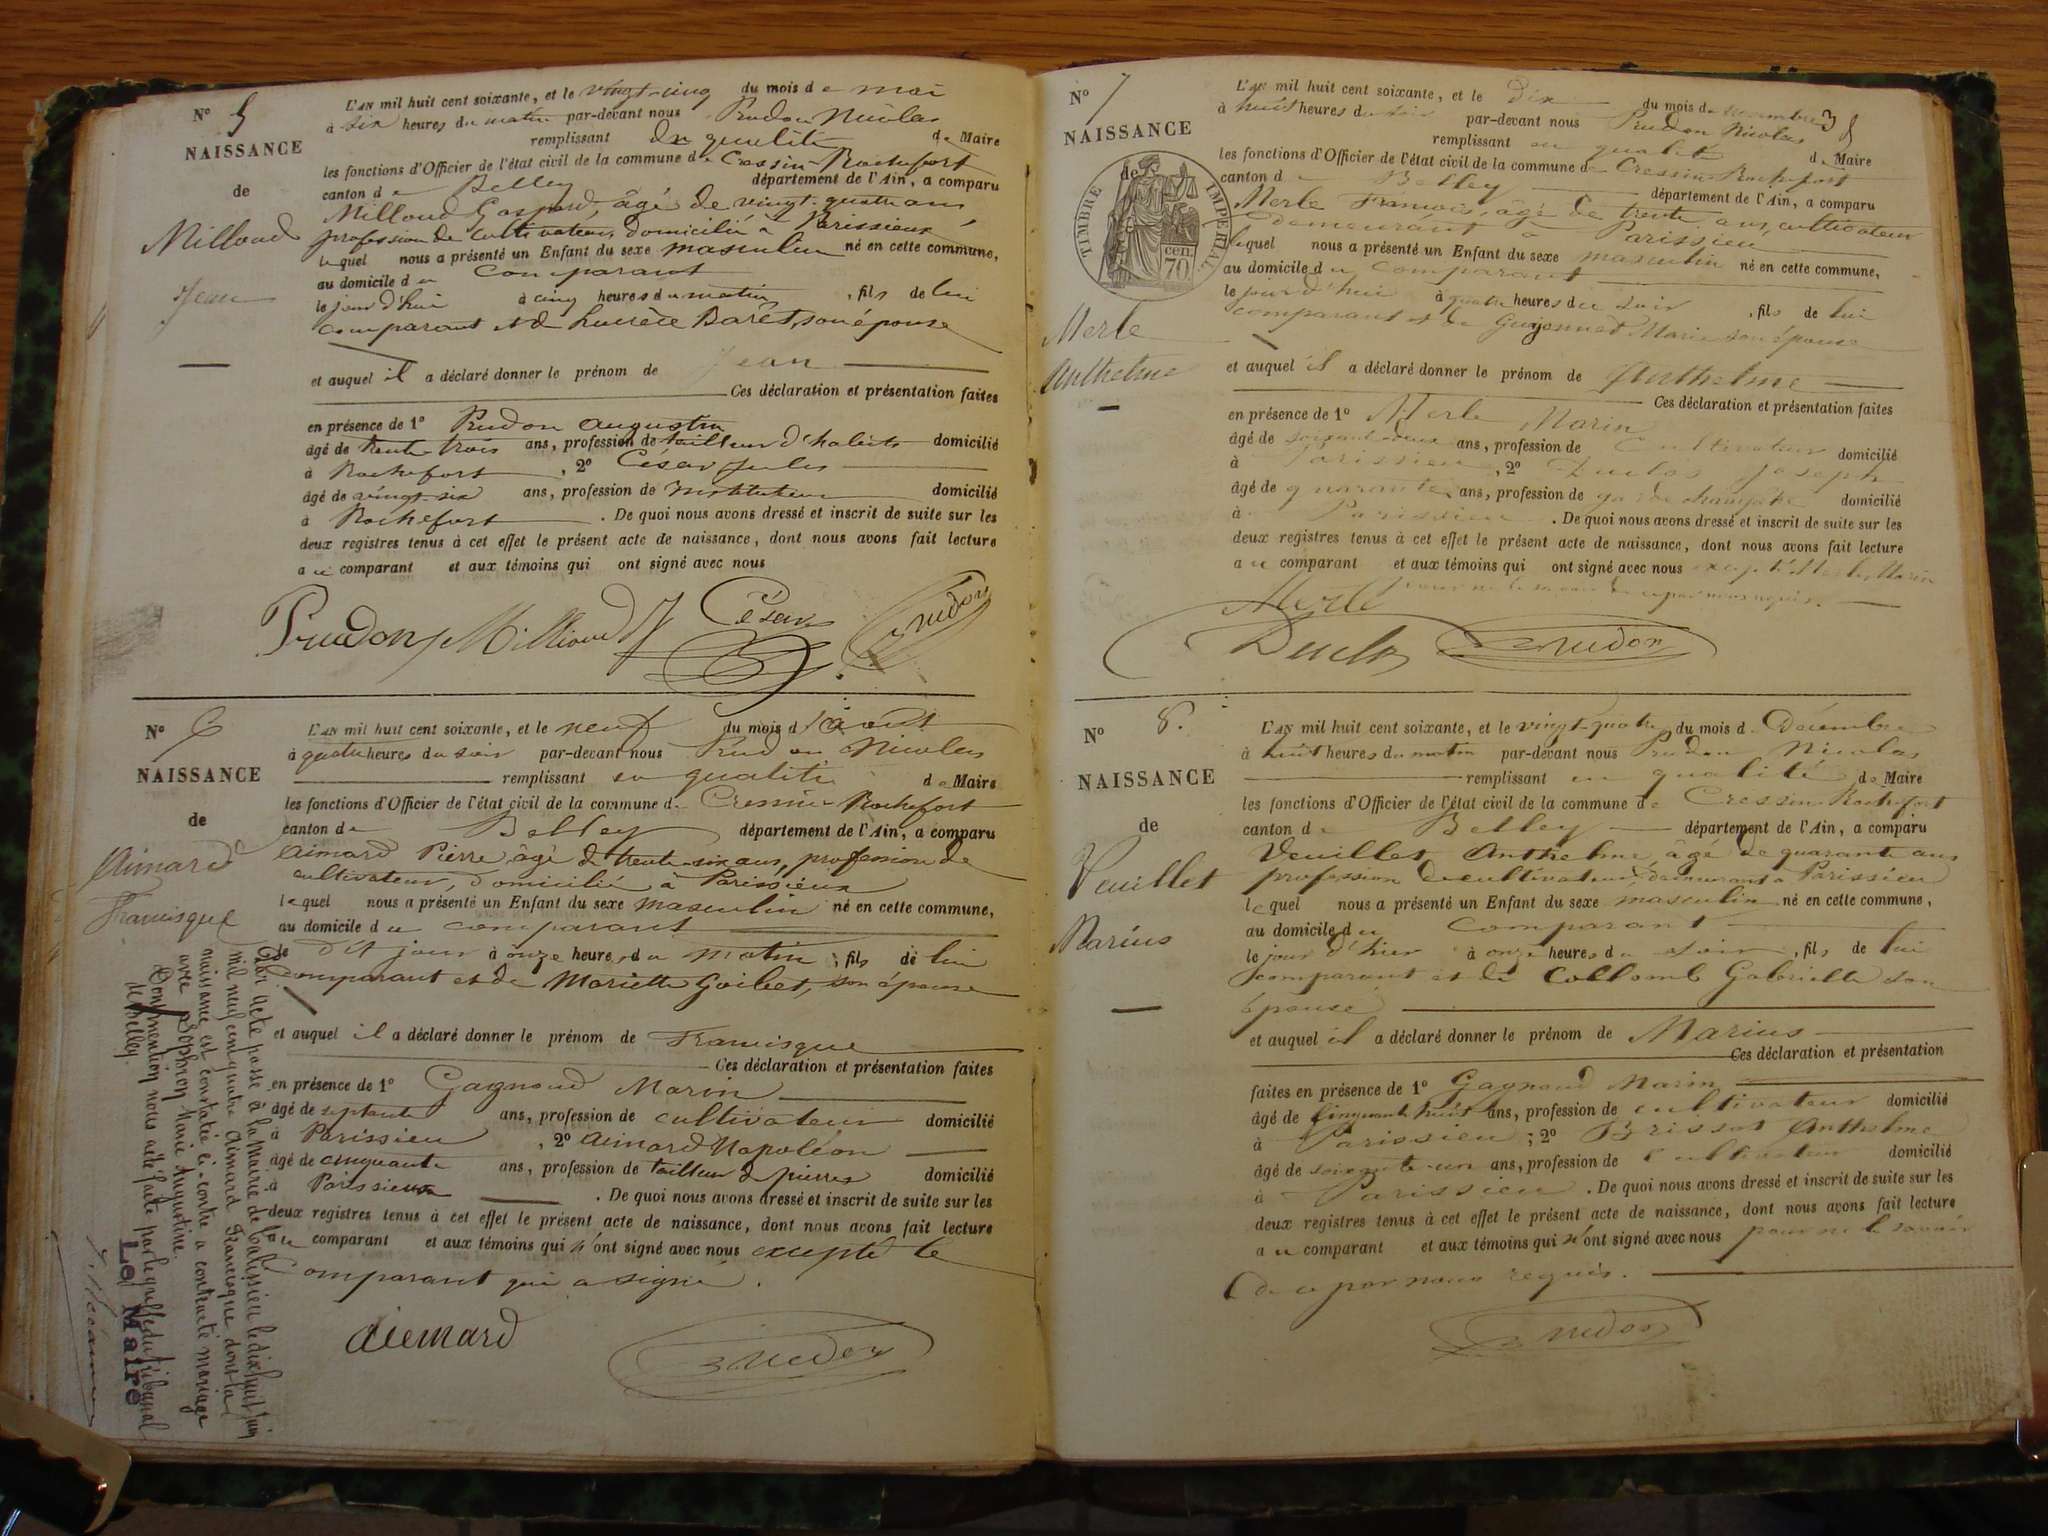 No 5
NAISSANCE
de
Milloud
Jean
L'AN mil huit cent soixante, et le vingt-cinq du mois de mai
à six heures du matin par-devant nous Prudon Nicolas
remplissant en qualité de Maire
les fonctions d'Officier de l'état civil de la commune de Cressin-Rochefort
canton de Belley département de l'Ain, a comparu
Milloud Gaspard, âgé de vingt-quatre ans,
profession de cultivateur, domicilié à Parissieux
lequel nous a présenté un Enfant du sexe masculin né en cette commune,
au domicile du comparant
le jour d'hui à cinq heures du matin, fils de lui
comparant et de Lucrèce Baret, son épouse
et auquel il a déclaré donner le prénom de Jean
Ces déclaration et présentation faites
en présence de 1º Prudon Augustin
âgé de trente-trois ans, profession de tailleur d'habits domicilié
à Rochefort, 2º César Jules
âgé de vingt-six ans, profession de Instituteur domicilié
à Rochefort. De quoi nous avons dressé et inscrit de suite sur les
deux registres tenus à cet effet le présent acte de naissance, dont nous avons fait lecture
au comparant et aux témoins qui ont signé avec nous
Prudon Milloud J César Prudon
No 6
NAISSANCE
de
Aimard
Francisque
L'AN mil huit cent soixante, et le neuf du mois d'août
à quatre heures du soir par-devant nous Prudon Nicolas
remplissant en qualité de Maire
les fonctions d'Officier de l'état civil de la commune de Cressin-Rochefort
canton de Belley département de l'Ain, a comparu
Aimard Pierre, âgé de trente-six ans, profession de
cultivateur, domicilié à Parissieux
lequel nous a présenté un Enfant du sexe masculin né en cette commune,
au domicile du comparant
de dit jour à onze heures du matin, fils de lui
comparant et de Mariette Goibet, son épouse
et auquel il a déclaré donner le prénom de Francisque
Ces déclaration et présentation faites
en présence de 1º Gagnoud Marin
âgé de septante ans, profession de cultivateur domicilié
à Parissieu, 2º Aimard Napoléon
âgé de cinquante ans, profession de tailleur de pierres domicilié
à Parissieux. De quoi nous avons dressé et inscrit de suite sur les
deux registres tenus à cet effet le présent acte de naissance, dont nous avons fait lecture
au comparant et aux témoins qui n'ont signé avec nous excepté le
Comparant qui a signé.
Aiemard Prudon
Par acte passé à la Mairie de le dix huit juin
mil neuf cent quatre Aimard Francisque dont la
naissance est constatée ci-contre a contracté mariage
avec Sophie Marie Augustine
Dont mention nous a été faite par le greffe du Tribunal
de Belley.
Le Maire
No 7
NAISSANCE
de
TIMBRE IMPERIAL
70 cen.
Merle
Anthelme
38
L'AN mil huit cent soixante, et le dix du mois de novembre
à huit heures du soir par-devant nous Prudon Nicolas
remplissant en qualité de Maire
les fonctions d'Officier de l'état civil de la commune de Cressin-Rochefort
canton de Belley département de l'Ain, a comparu
Merle François, âgé de trente ans, cultivateur
demeurant à Parissieu
lequel nous a présenté un Enfant du sexe masculin né en cette commune,
au domicile du comparant
le jour d'hui à quatre heures du soir, fils de lui
comparant et de Guyonnet Marie son épouse
et auquel il a déclaré donner le prénom de Anthelme
Ces déclaration et présentation faites
en présence de 1º Merle Marin
âgé de soixante-deux ans, profession de Cultivateur domicilié
à Parissieu, 2º Duclos Joseph
âgé de quarante ans, profession de garde champêtre domicilié
à Parissieu. De quoi nous avons dressé et inscrit de suite sur les
deux registres tenus à cet effet le présent acte de naissance, dont nous avons fait lecture
au comparant et aux témoins qui ont signé avec nous excepté Merle Marin
pour ne le savoir de ce par nous requis.
Merle
Duclos Prudon
No 8.
NAISSANCE
de
Veuillet
Marius
L'AN mil huit cent soixante, et le vingt-quatre du mois de Décembre
à huit heures du matin par-devant nous Prudon Nicolas
remplissant en qualité de Maire
les fonctions d'Officier de l'état civil de la commune de Cressin-Rochefort
canton de Belley département de l'Ain, a comparu
Veuillet Anthelme, âgé de quarante ans
profession de cultivateur, demeurant à Parissieu
lequel nous a présenté un Enfant du sexe masculin né en cette commune,
au domicile du comparant
le jour d'hier à onze heures du soir, fils de lui
comparant et de Collomb Gabrielle son
épouse
et auquel il a déclaré donner le prénom de Marius
Ces déclaration et présentation
faites en présence de 1º Gagnoud Marin
âgé de cinquante huit ans, profession de cultivateur domicilié
à Parissieu; 2º Brissot Anthelme
âgé de soixante-un ans, profession de cultivateur domicilié
à Parissieu. De quoi nous avons dressé et inscrit de suite sur les
deux registres tenus à cet effet le présent acte de naissance, dont nous avons fait lecture
au comparant et aux témoins qui n'ont signé avec nous pour ne le savoir
de ce par nous requis.
Prudon